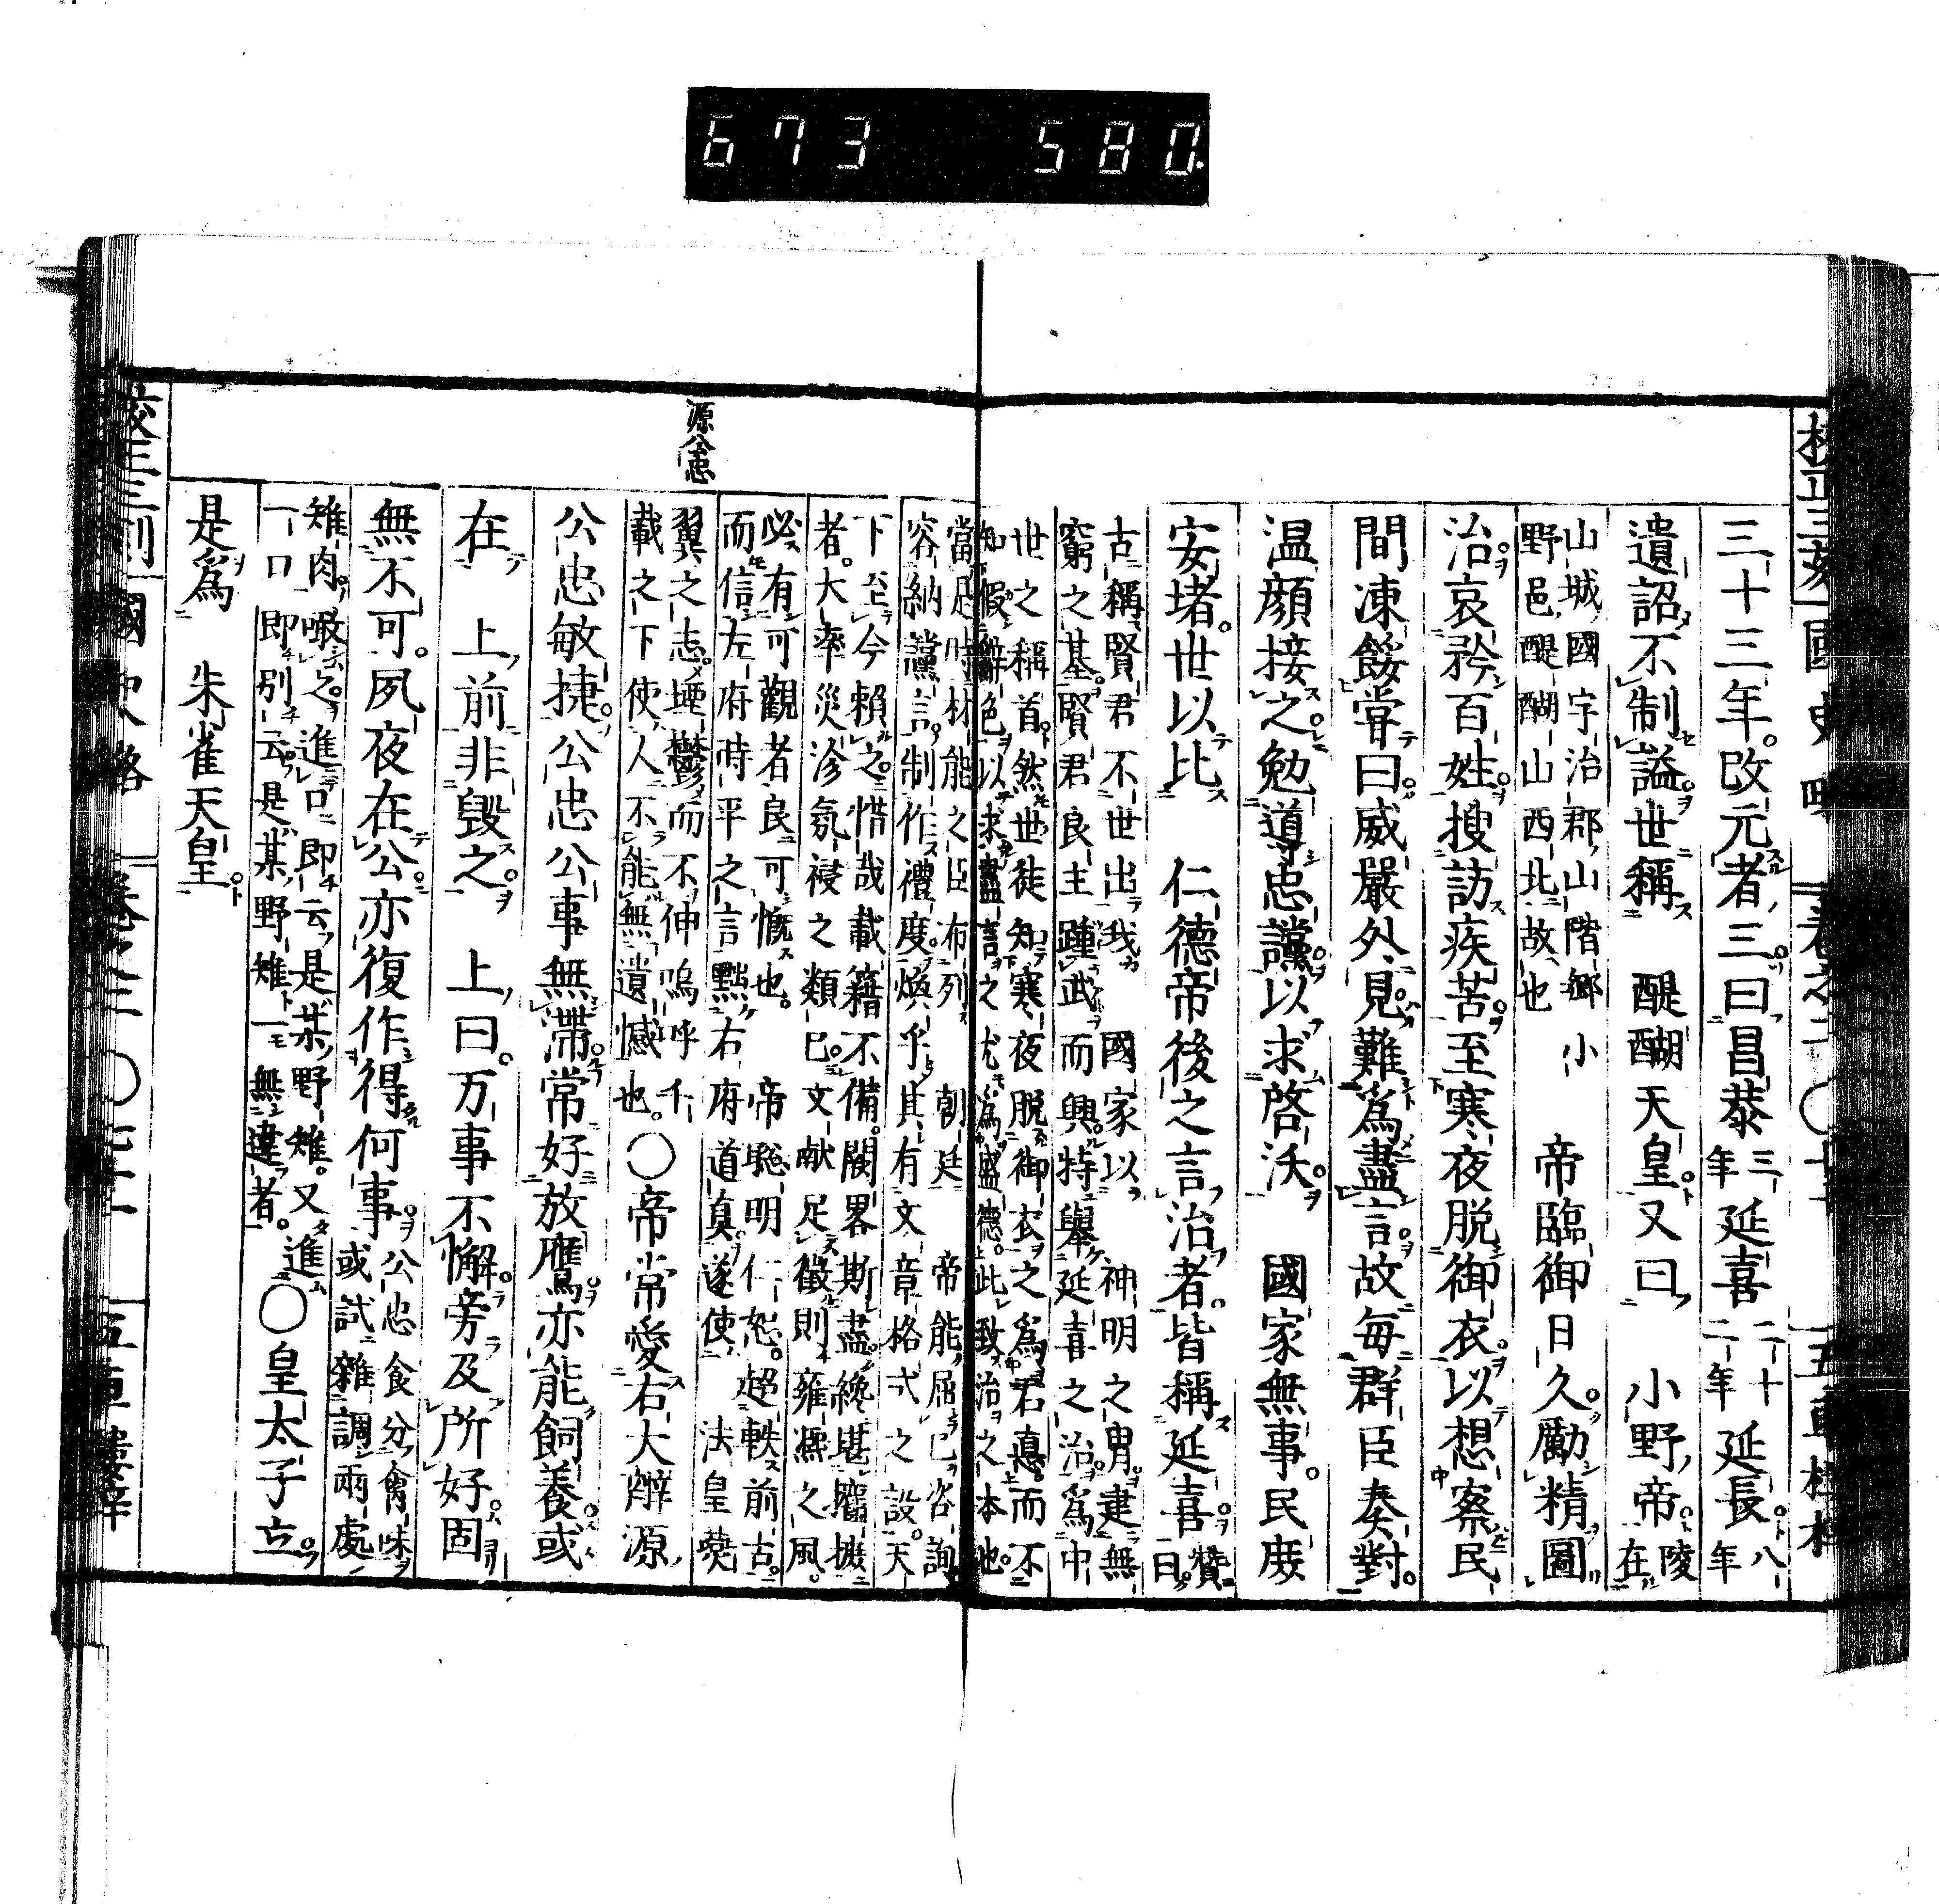 673 580
三十三年。改元者三。曰昌泰三年延喜二十二年延長八年
遺詔不制謚世稱 醍醐天皇又曰 小野帝陵在
山城國宇治郡山階鄉小
野邑醍醐山西北故也
治哀矜百姓搜訪疾苦至寒夜脱御衣以想察民
帝臨御日久勵精圖
間凍餒嘗曰威嚴外見難爲盡言故每群臣奏對。
温顏接之勉導忠讜以求啓沃 國家無事。民庶
安堵。世以比 仁德帝後之言治者。皆稱延喜贊曰
古稱賢君不世出我 國家以 神明之胄建無
窮之基賢君良主踵武而興特舉延喜之治爲中
世之稱首然世徒知寒夜脱御衣之爲君德而不
知假辭色以求盡言之尤爲盛德。此致治之本也。
當是時材能之臣布列 朝廷 帝能屈己咨詢
容納讜言制作禮度煥乎其有文章格式之設。天
下至今賴之惜哉載籍不備。闕畧斯盡纔堪牖機
者。大率災沴氛祲之類已文献足徵則雍凞之風。
必有可觀者良可慨也。 帝聡明仁恕。超軼前古。
而信左府時平之言黜右府道真遂使 法皇奬
翼之志堙鬱而不伸嗚呼千
載之下使人不能無遺憾也。〇帝常愛右大辨源
源公忠
公忠敏捷公忠公事無滯常好放鷹亦能飼養或
在 上前非毀之 上曰。万事不懈旁及所好固
無不可。夙夜在公亦復作得何事公忠食分禽味
或試雜調兩處
雉肉噉之進口即云是某野雉。又進
一口即別云是某野雉一無違者。〇皇太子立。
是爲 朱雀天皇